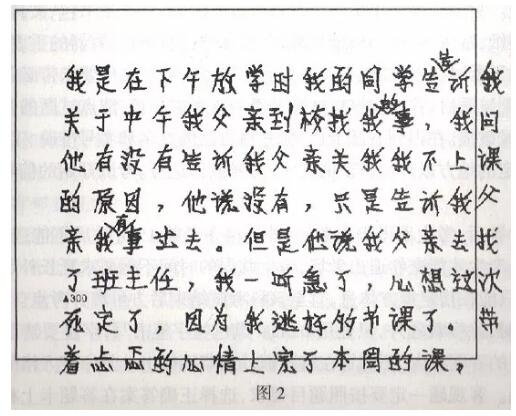 我是在下午放学时我的同学告诉我
关于中午我父亲到校找我故事，我问
他有没有告诉我父亲关我我不上课
的原因，他说没有，只是告诉我父
亲我有事出去。但是他说我父亲去找
了班主任，我一听急了，心想这次
△300
死定了。因为我逃好的节课了。带
着忐忑的心情一定不本的课。
图2